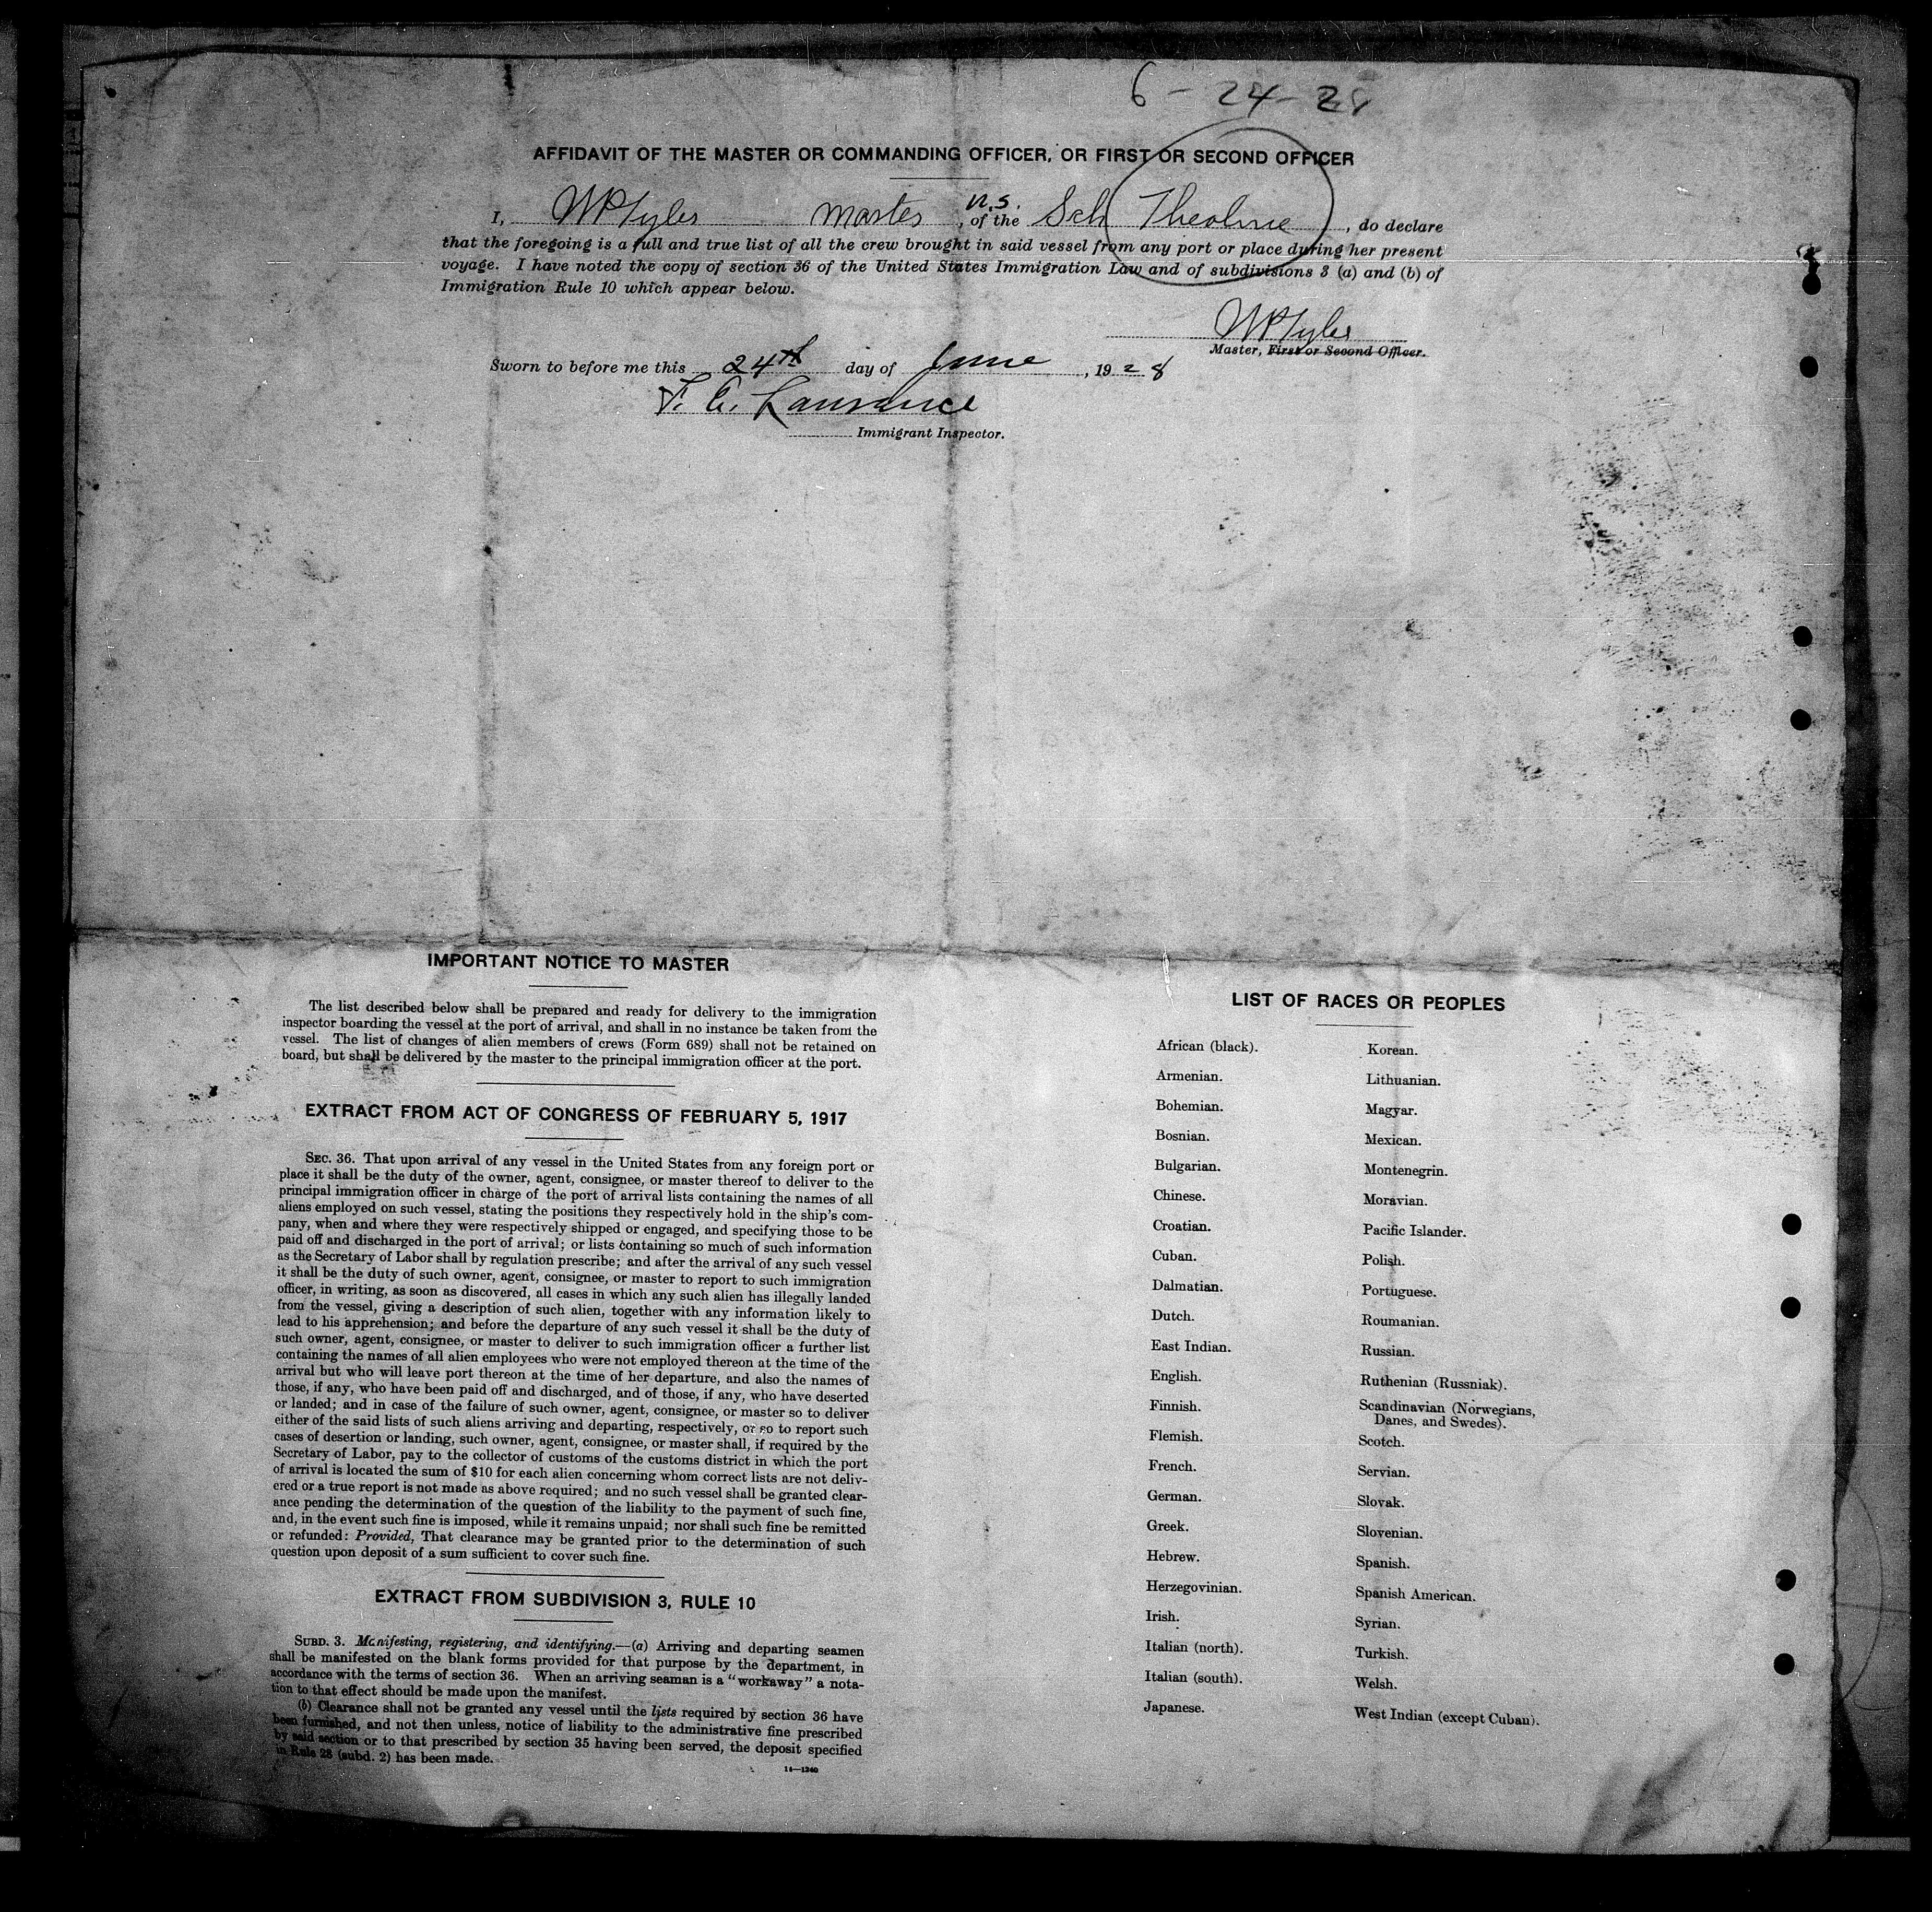 6-24-28
AFFIDAVIT OF THE MASTER OR COMMANDING OFFICER, OR FIRST OR SECOND OFFICER
I, master, of the Sch Theoline, do declare
that the foregoing is a full and true list of all the crew brought in said vessel from any port or place during her present
voyage. I have noted the copy of section 36 of the United States Immigration Law and of subdivisions 3 (a) and (b) of
Immigration Rule 10 which appear below.
Master, First or Second Officer.
Sworn to before me this 24th day of June, 1928
Immigrant Inspector.
IMPORTANT NOTICE TO MASTER
The list described below shall be prepared and ready for delivery to the immigration
inspector boarding the vessel at the port of arrival, and shall in no instance be taken from the
vessel. The list of changes of alien members of crews (Form 689) shall not be retained on
board, but shall be delivered by the master to the principal immigration officer at the port.
EXTRACT FROM ACT OF CONGRESS OF FEBRUARY 5, 1917
SEC. 36. That upon arrival of any vessel in the United States from any foreign port or
place it shall be the duty of the owner, agent, consignee, or master thereof to deliver to the
principal immigration officer in charge of the port of arrival lists containing the names of all
aliens employed on such vessel, stating the positions they respectively hold in the ship's com-
pany, when and where they were respectively shipped or engaged, and specifying those to be
paid off and discharged in the port of arrival; or lists containing so much of such information
as the Secretary of Labor shall by regulation prescribe; and after the arrival of any such vessel
it shall be the duty of such owner, agent, consignee, or master to report to such immigration
officer, in writing, as soon as discovered, all cases in which any such alien has illegally landed
from the vessel, giving a description of such alien, together with any information likely to
lead to his apprehension; and before the departure of any such vessel it shall be the duty of
such owner, agent, consignee, or master to deliver to such immigration officer a further list
containing the names of all alien employees who were not employed thereon at the time of the
arrival but who will leave port thereon at the time of her departure, and also the names of
those, if any, who have been paid off and discharged, and of those, if any, who have deserted
or landed; and in case of the failure of such owner, agent, consignee, or master so to deliver
either of the said lists of such aliens arriving and departing, respectively, or so to report such
cases of desertion or landing, such owner, agent, consignee, or master shall, if required by the
Secretary of Labor, pay to the collector of customs of the customs district in which the port
of arrival is located the sum of $10 for each alien concerning whom correct lists are not deliv-
ered or a true report is not made as above required; and no such vessel shall be granted clear-
ance pending the determination of the question of the liability to the payment of such fine,
and, in the event such fine is imposed, while it remains unpaid; nor shall such fine be remitted
or refunded: Provided, That clearance may be granted prior to the determination of such
question upon deposit of a sum sufficient to cover such fine.
EXTRACT FROM SUBDIVISION 3, RULE 10
SUBD. 3. Manifesting, registering, and identifying.—(a) Arriving and departing seamen
shall be manifested on the blank forms provided for that purpose by the department, in
accordance with the terms of section 36. When an arriving seaman is a "workaway" a nota-
tion to that effect should be made upon the manifest.
(b) Clearance shall not be granted any vessel until the lists required by section 36 have
been furnished, and not then unless, notice of liability to the administrative fine prescribed
by said section or to that prescribed by section 35 having been served, the deposit specified
in Rule 28 (subd. 2) has been made.
14—1240
LIST OF RACES OR PEOPLES
African (black).
Armenian.
Bohemian.
Bosnian.
Bulgarian.
Chinese.
Croatian.
Cuban.
Dalmatian.
Dutch.
East Indian.
English.
Finnish.
Flemish.
French.
German.
Greek.
Hebrew.
Herzegovinian.
Irish.
Italian (north).
Italian (south).
Japanese.
Korean.
Lithuanian.
Magyar.
Mexican.
Montenegrin.
Moravian.
Pacific Islander.
Polish.
Portuguese.
Roumanian.
Russian.
Ruthenian (Russniak).
Scandinavian (Norwegians,
Danes, and Swedes).
Scotch.
Servian.
Slovak.
Slovenian.
Spanish.
Spanish American.
Syrian.
Turkish.
Welsh.
West Indian (except Cuban).